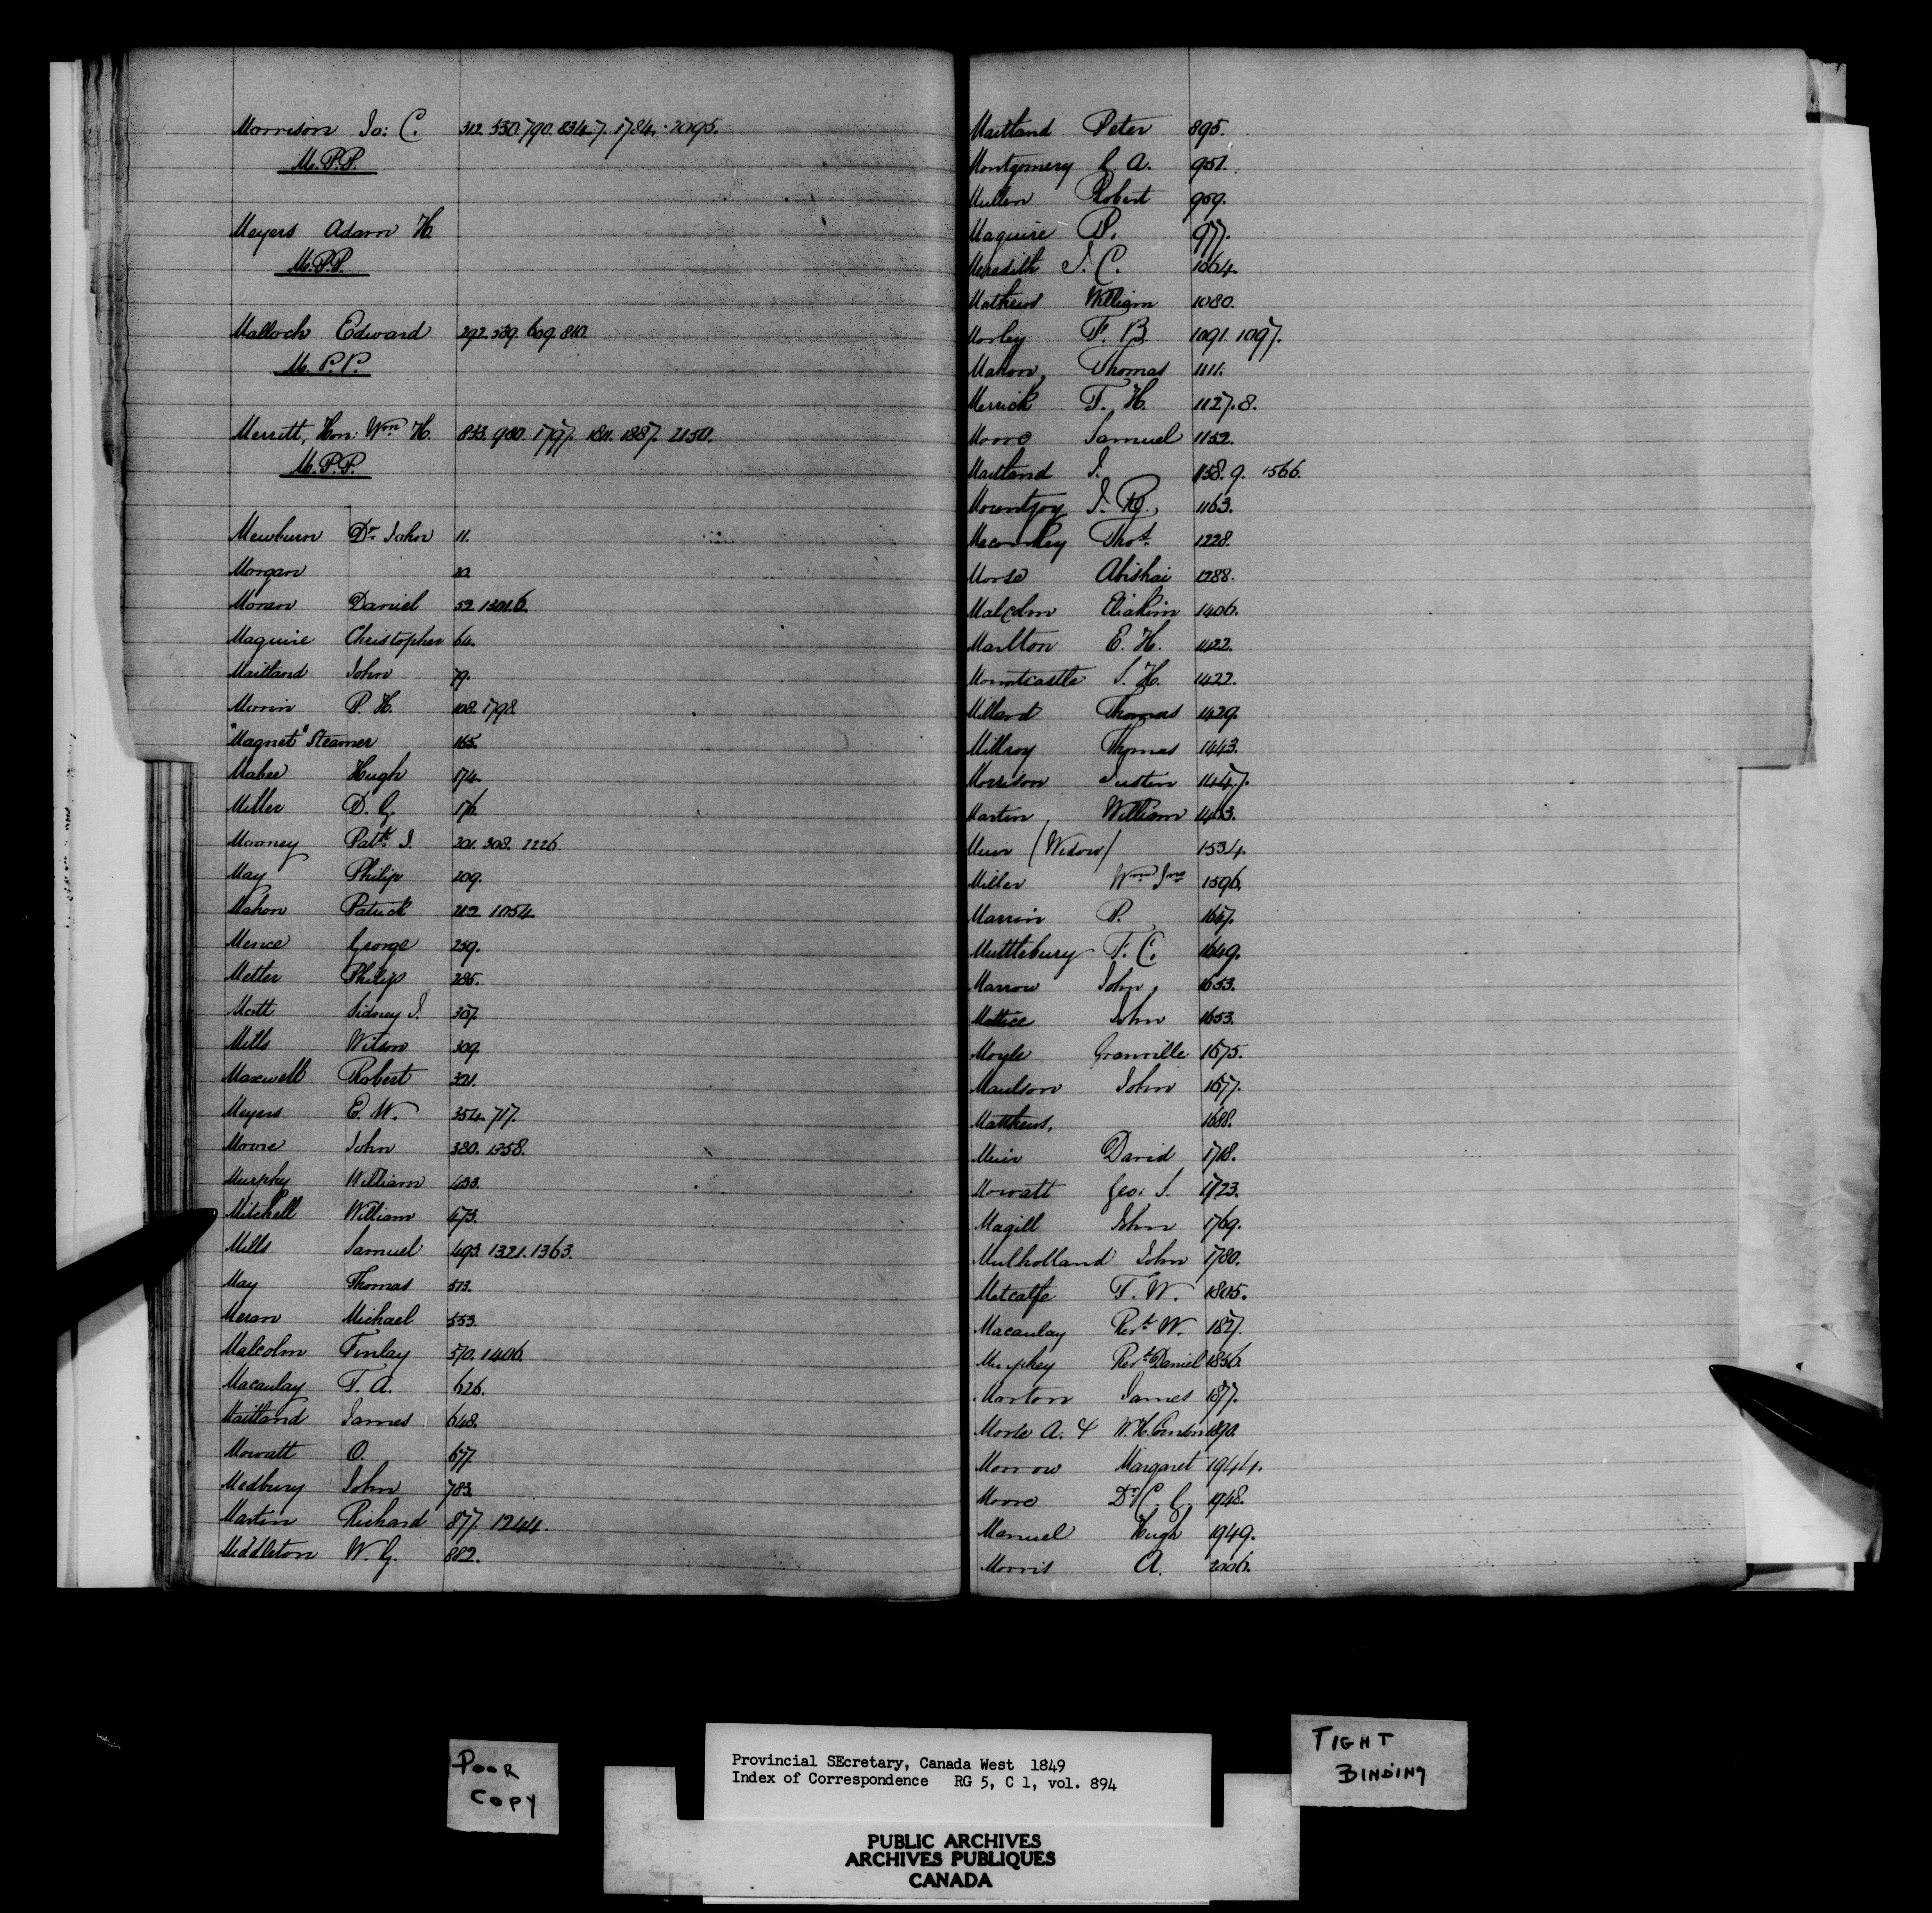 Morrison Jo: C. 312. 530. 790. 834.7. 1784. 2095.
M.P.P.
Meyers Adam H.
M.P.P.
Malloch Edward 292. 539. 609. 810.
M.P.P.
Merritt, Hon: Wm H. 833. 980. 1797. 1811. 1887. 2150.
M.P.P.
Mewburn Dr John 11.
Morgan 20.
Moran Daniel 52. 1301.6.
Maguire Christopher 64.
Maitland John 79.
Morrin P. H. 108. 1798.
"Magnet" Steamer 165.
Mabee Hugh 174.
Miller D. G. 176.
Mooney Patk J. 201. 308. 2226.
May Philip 209.
Mahon Patrick 212. 1054.
Mence George 259.
Metler Philip 285.
Mott Sidney J. 307.
Mills Wilson 309.
Maxwell Robert 321.
Meyers E. W. 354. 717.
Moore John 380. 1358.
Murphy William 433.
Mitchell William 473.
Mills Samuel 493. 1321. 1363.
May Thomas 513.
Meran Michael 553.
Malcolm Finlay 570. 1406.
Macaulay T. A. 626.
Maitland James 648.
Mowatt O. 677.
Medbury John 783.
Martin Richard 877. 1244.
Middleton W. G. 882.
Maitland Peter 895.
Montgomery G. A. 951.
Mullen Robert 959.
Maguire P. 977.
Meredith J. C. 1064.
Mathews William 1080.
Morley F. B. 1091. 1097.
Mahon, Thomas 1111.
Merrick T. H. 1127.8.
Moore Samuel 1152.
Maitland J. 1158.9. 1566.
Mountjoy J. 1163.
Thos. 1228.
Morse Abishai 1288.
Malcolm Eliakim 1406.
Marlton E. H. 1422.
Mountcastle S. H. 1422.
Millard Thomas 1429.
Millroy Thomas 1443.
Morrison Justin 1447.
Martin William 1453.
Muir (Widow) 1534.
Miller Wm Jnr 1596.
Marrin P. 1647.
Muttlebury F. C. 1649.
Marrow John, 1653.
Mattice John 1653.
Moyle Granville 1675.
Maulson John 1677.
Matthews, 1688.
Muir David 1718.
Mowatt Geo: S. 1723.
Magill John 1769.
Mulholland John 1780.
Metcalfe T. W. 1805.
Macaulay Revd W. 1827.
Murphey Revd Daniel 1856.
Morton James 1877.
Morse A. & W. H. 1890.
Morrow Margaret 1944.
Moore Dr C. G. 1948.
Manuel Hugh 1949.
Morris A. 2006.
POOR
COPY
Provincial SEcretary, Canada West 1849
Index of Correspondence RG 5, C 1, vol. 894
TIGHT
BINDING
PUBLIC ARCHIVES
ARCHIVES PUBLIQUES
CANADA